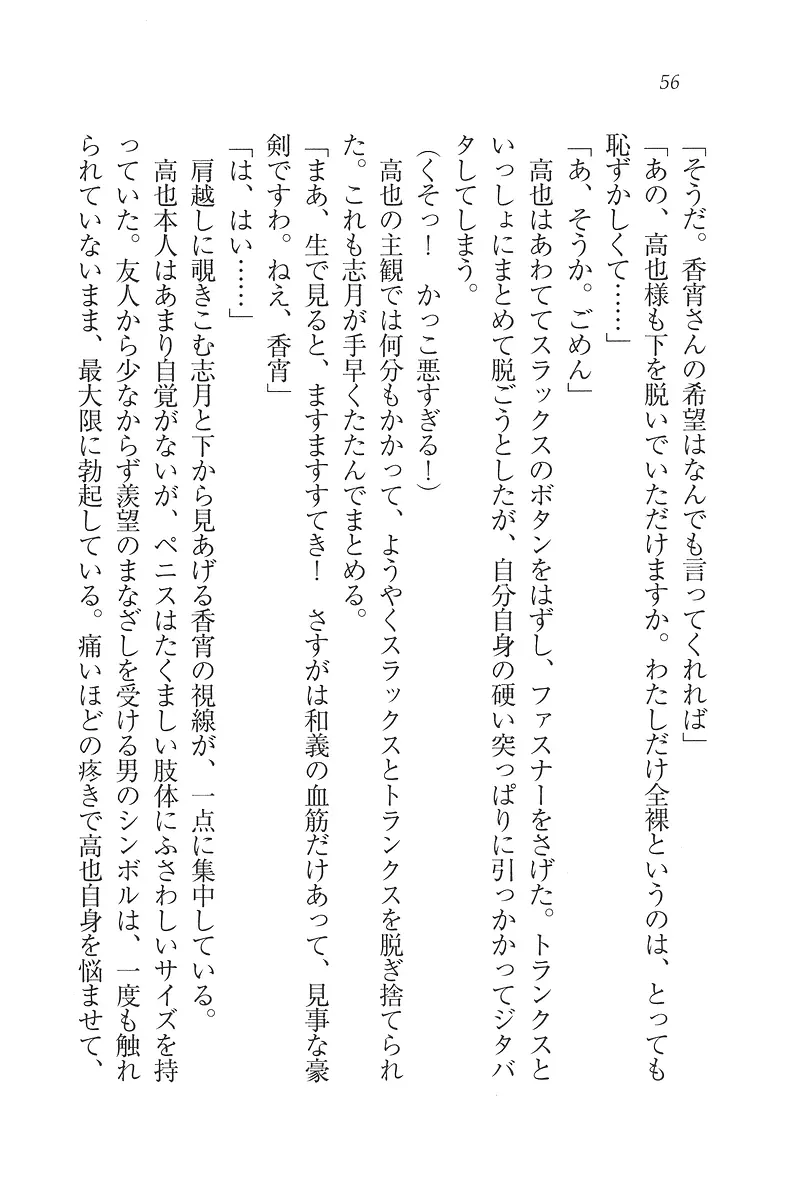 56
「そうだ。香宵さんの希望はなんでも言ってくれれば」
「あの、高也様も下を脱いでいただけますか。わたしだけ全裸というのは、とっても
恥ずかしくて……」
「あ、そうか。ごめん」
高也はあわててスラックスのボタンをはずし、ファスナーをさげた。トランクスと
いっしょにまとめて脱ごうとしたが、自分自身の硬い突っぱりに引っかかってジタバ
タしてしまう。
（くそっ！　かっこ悪すぎる！）
高也の主観では何分もかかって、ようやくスラックスとトランクスを脱ぎ捨てられ
た。これも志月が手早くたたんでまとめる。
「まあ、生で見ると、ますますすてき！　さすがは和義の血筋だけあって、見事な豪
剣ですわ。ねえ、香宵」
「は、はい……」
肩越しに覗きこむ志月と下から見あげる香宵の視線が、一点に集中している。
高也本人はあまり自覚がないが、ペニスはたくましい肢体にふさわしいサイズを持
っていた。友人から少なからず羨望のまなざしを受ける男のシンボルは、一度も触れ
られていないまま、最大限に勃起している。痛いほどの疼きで高也自身を悩ませて、